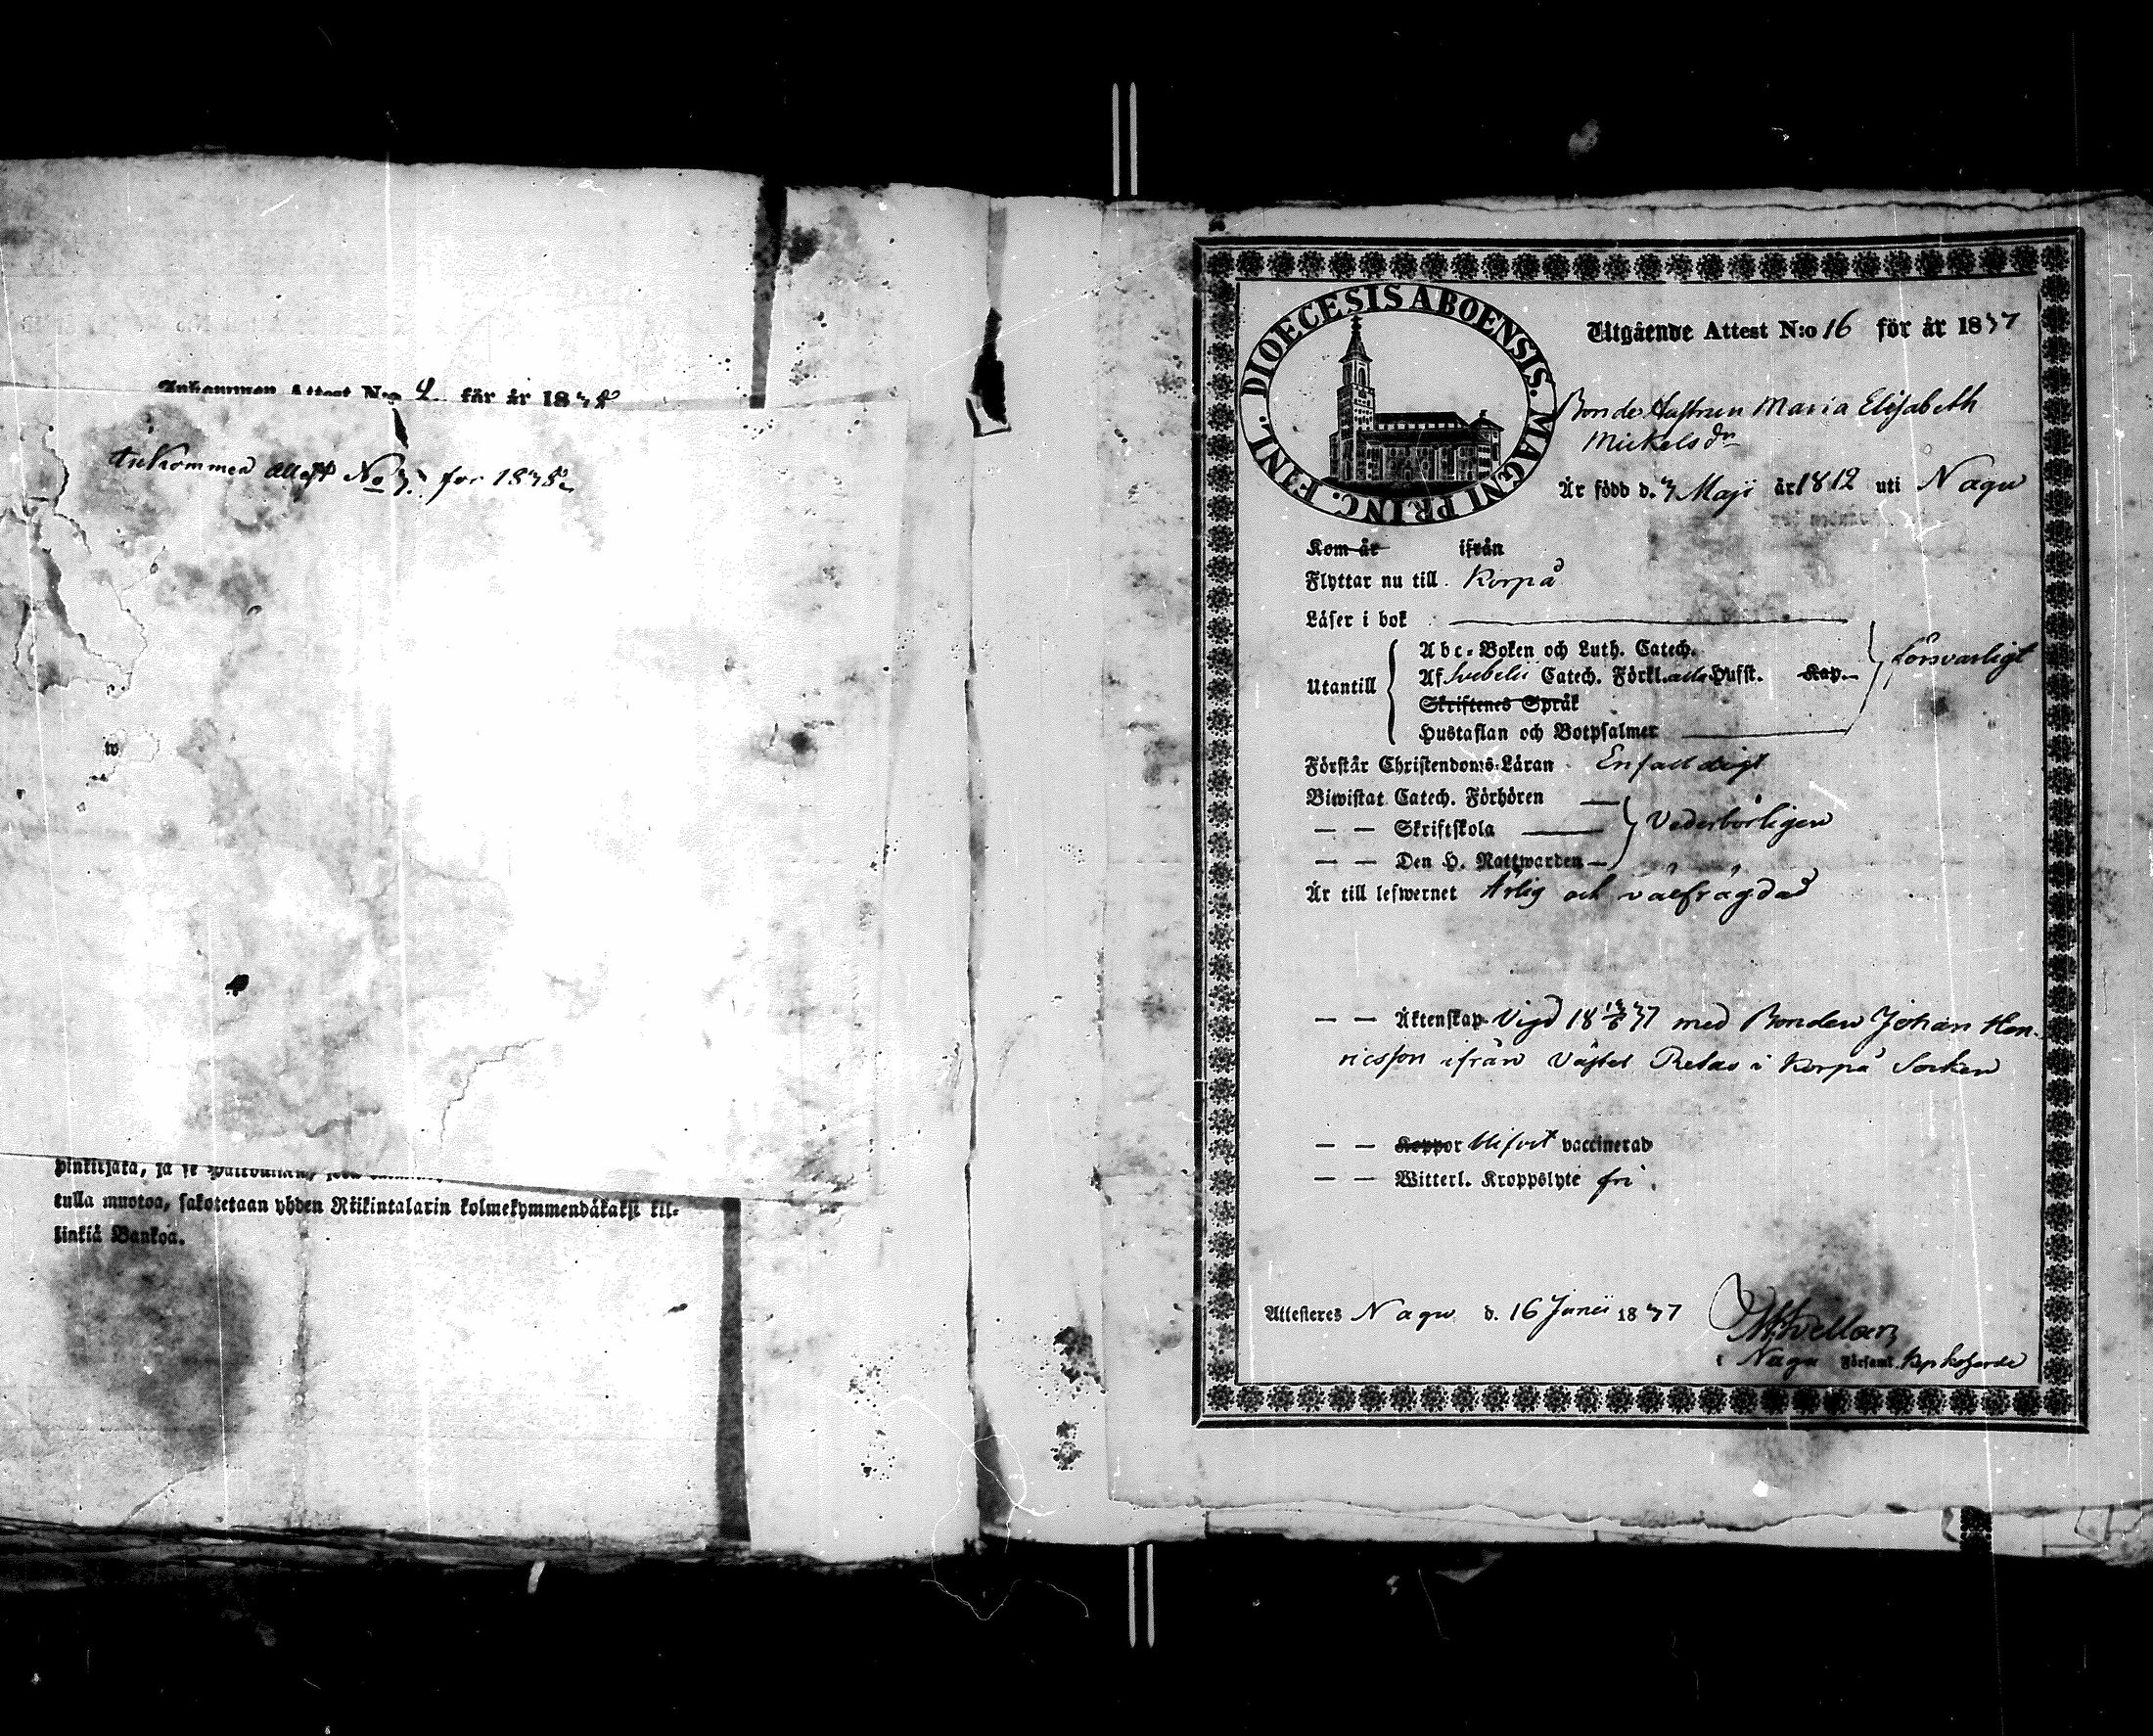 Ankommen Attest N:o 2 för år 1838
Inkommen attest No 3 for 1838
w
tulla muotoa, sakotetaan yhden Riikintalarin kolmekymmendäkaksi kil-
linkiä Bankoa.
DIOECESIS ABOENSIS. MAGNI PRINC. FINL.
Utgående Attest N:o 16 för år 1837
Bonde Hustrun Maria Elisabeth
Mickelsdr
Är född d. 3 Maji år 1812 uti Nagu
Kom år ifrån
Flyttar nu till Korpå
Läser i bok
Abc-Boken och Luth. Catech.
försvarligt
Utantill Af Svebelii Catech. Förkl. alla Hufst. Kap.
Skriftenes Språk
Hustaflan och Botpsalmer
Förstår Christendoms-Läran Enfaldigt
Biwistat Catech. Förhören
— — Skriftskola Vederbörligen
— — Den H. Nattwarden
Är till lefwernet Ärlig och välfrägdad
— — Äktenskap Vigd 18 13/6 37 med Bonden Johan Hen-
ricsson ifrån Västet Retas i Korpå Socken
— — Koppor blifvit vaccinerad
— — Witterl. Kroppslyte fri.
Attesteras Nagu d. 16 Junii 1837
i Nagu Församl.